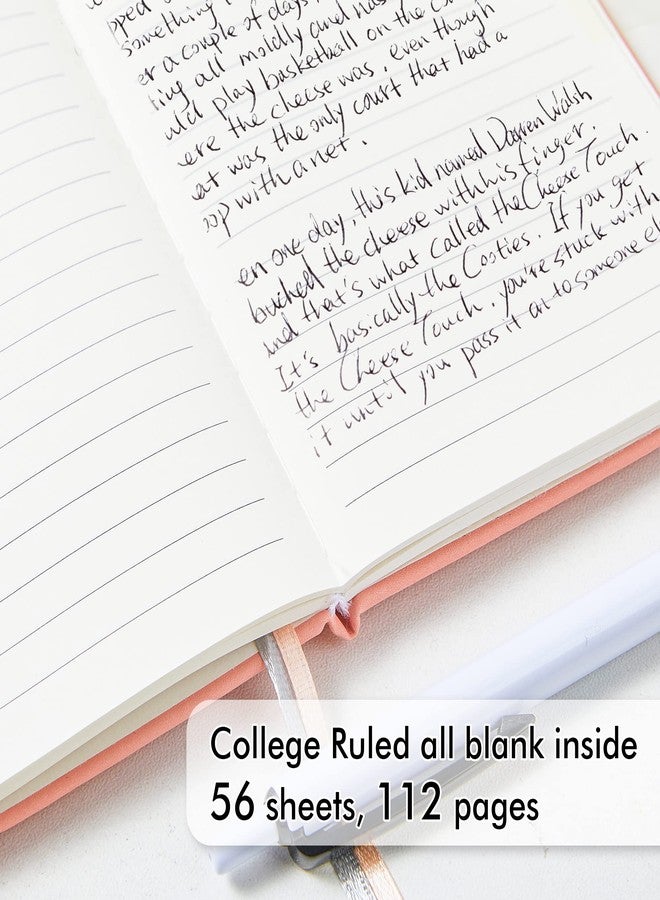 something
er a couple of days
ting all moldly and nas
uld play basketball on the co
ere the cheese was. even though
at was the only court that had a
oop with a net.
en one day, this kid named Darren Walsh
touched the cheese with his finger.
and that's what called the Cheese Touch.
It's basically the Cooties. If you get
the Cheese Touch, you're stuck with
it until you pass it on to someone el
College Ruled all blank inside
56 sheets, 112 pages